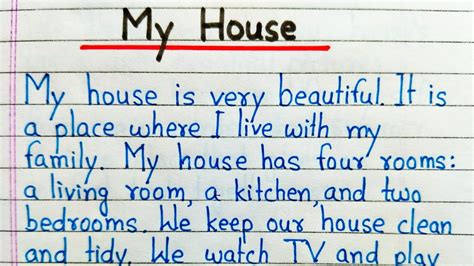 My House
My house is very beautiful. It is
a place where I live with my
family. My house has four rooms:
a living room, a kitchen, and two
bedrooms. We keep our house clean
and tidy. We watch TV and play